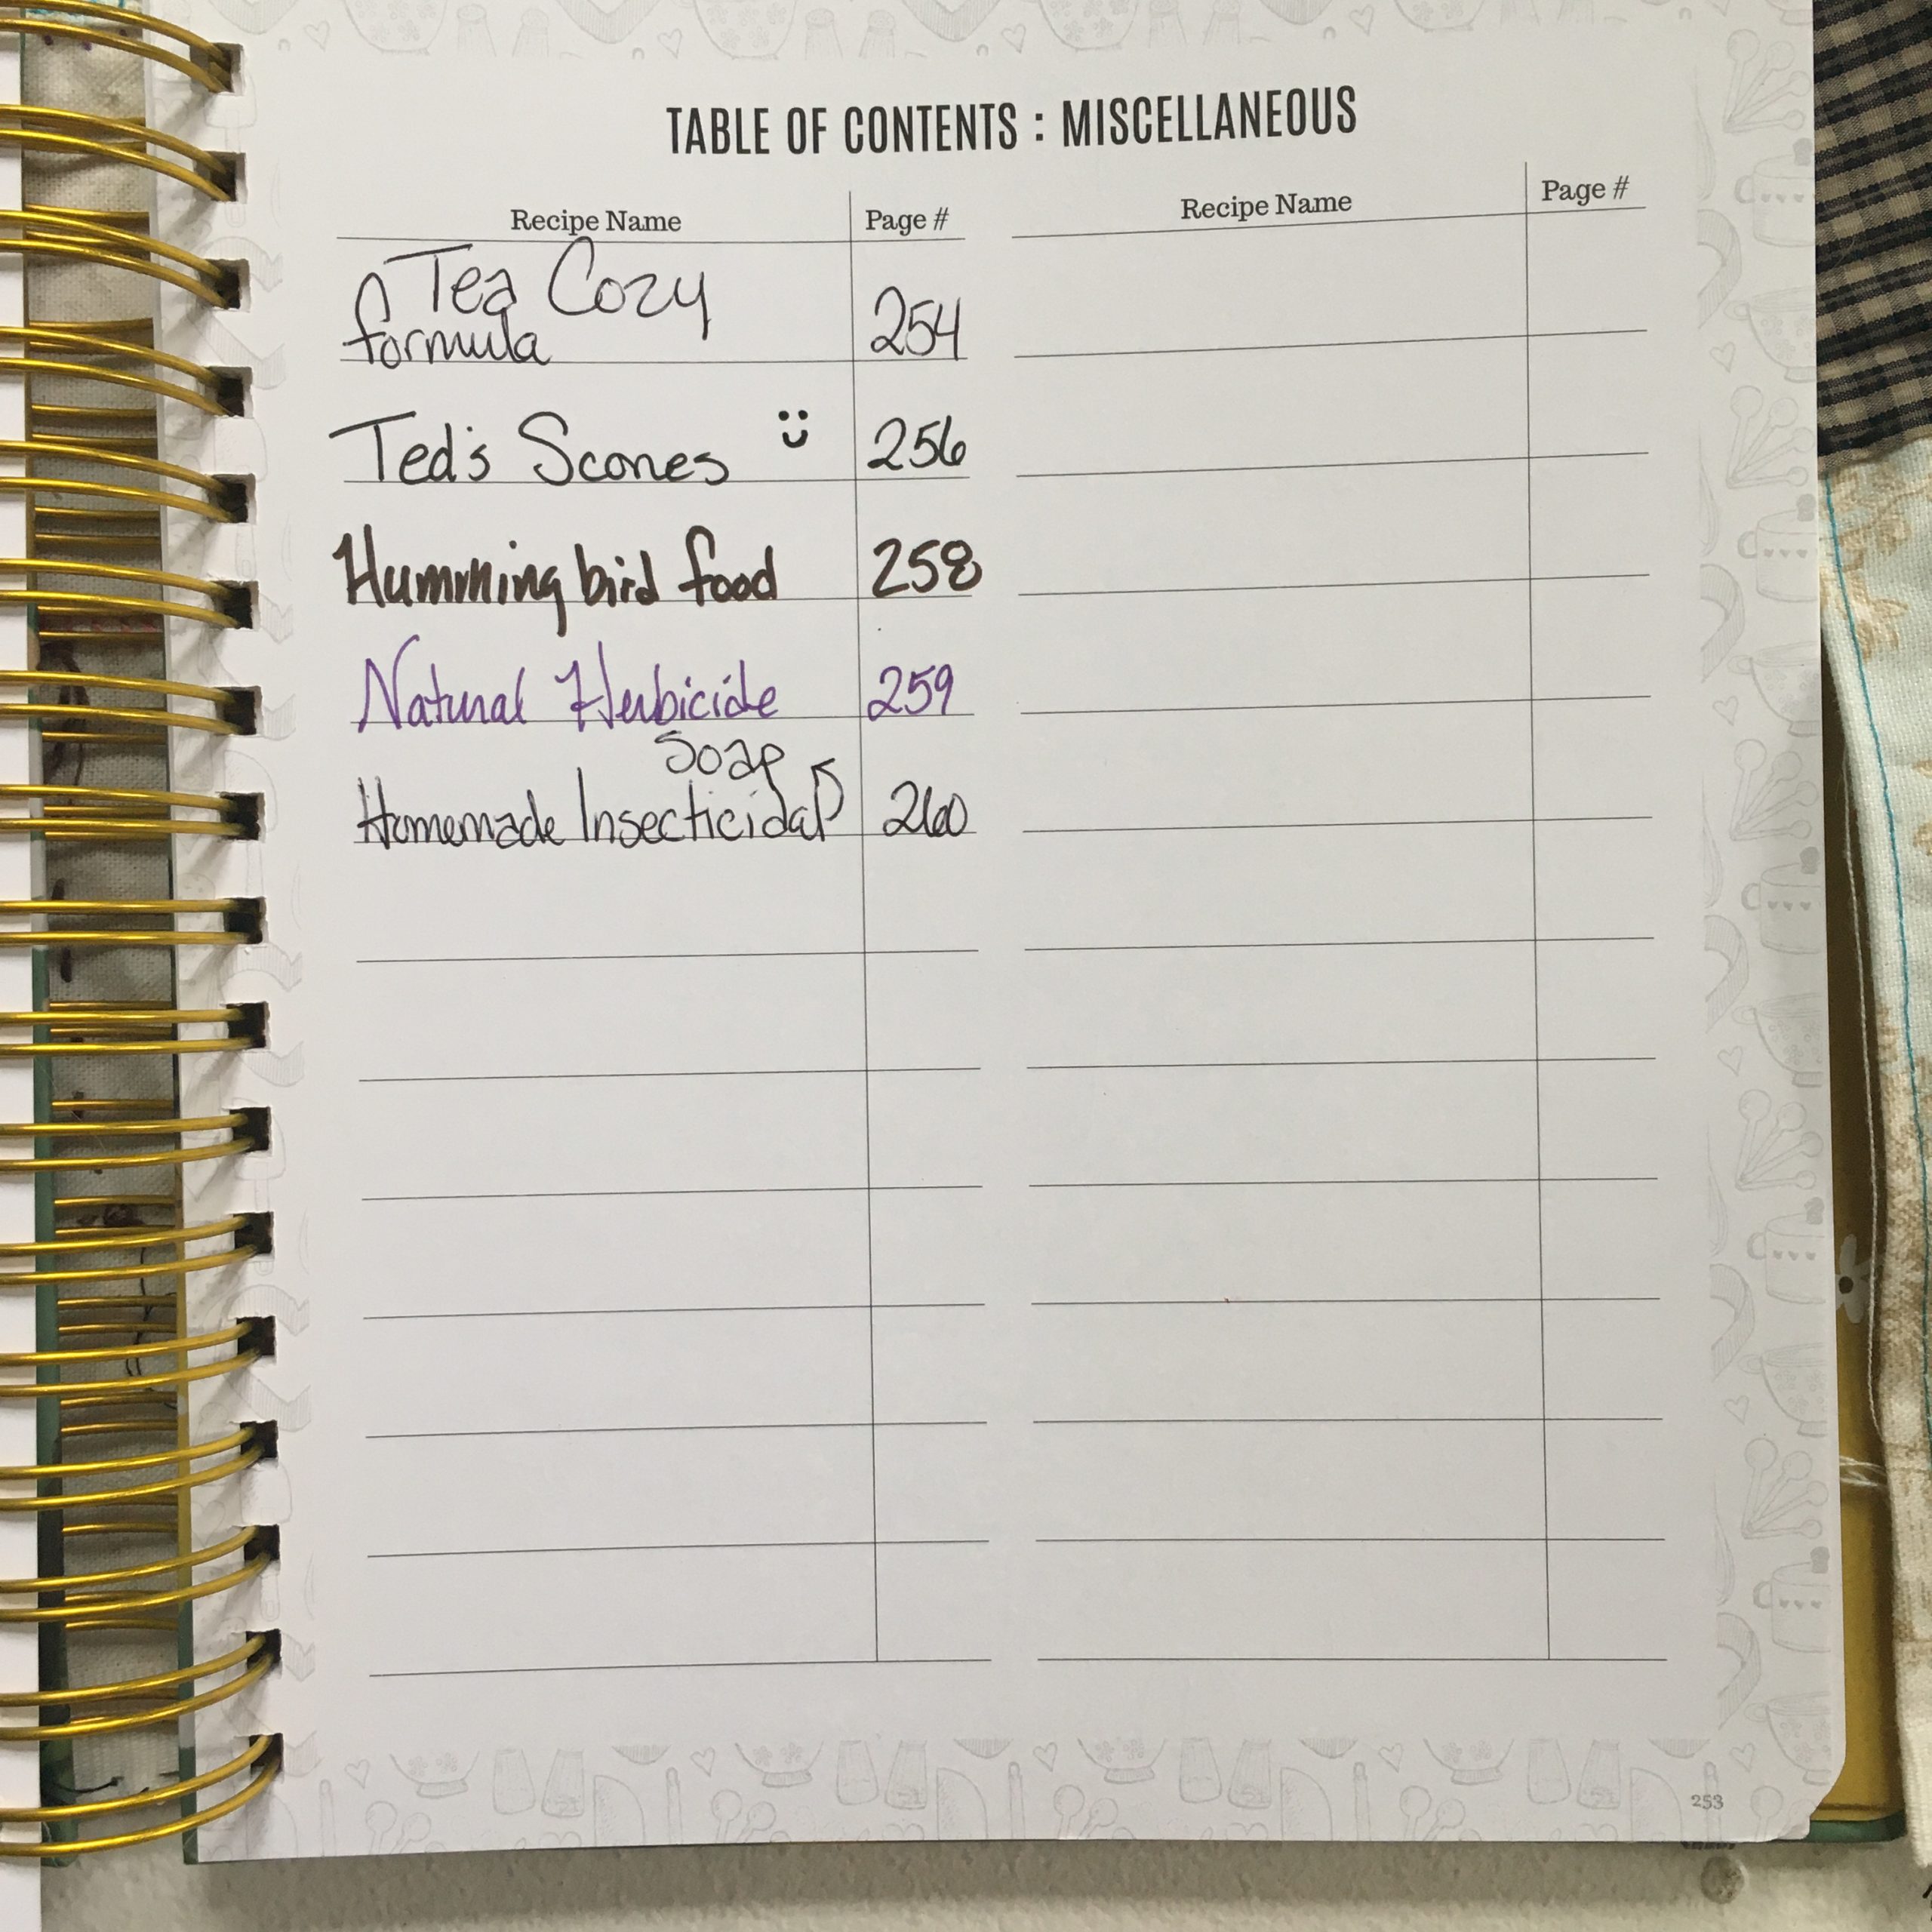 TABLE OF CONTENTS : MISCELLANEOUS
Recipe Name Page # Recipe Name Page #
Tea Cozy
formula 254
Ted's Scones 256
Humming bird food 258
Natural Herbicide 259
Soap
Homemade Insecticidal 260
253